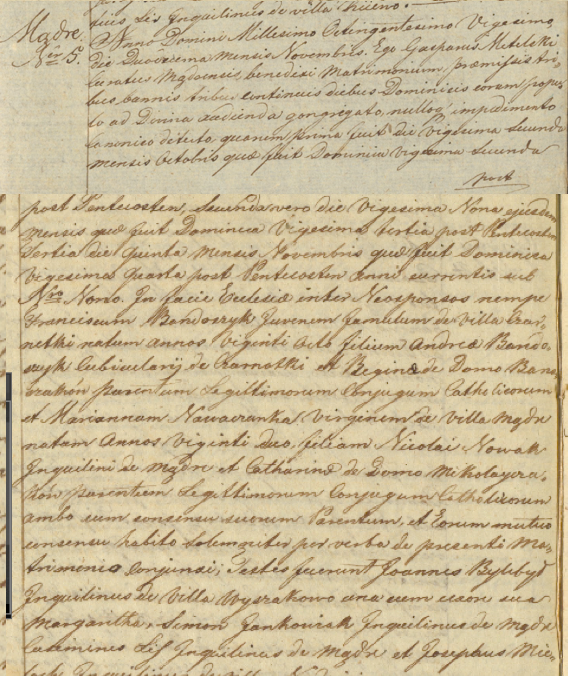 suis Lis Inquilinus de villa
Mądre
Nro 5.
Anno Domini Millesimo Octingentesimo Vigesimo
Die Duodecima Mensis Novembris. Ego Gasparus
curatus Mądrensis, benedixi Matrimonium præmissis tri-
bus bannis tribus continuis diebus Dominicis coram popu-
lo ad Divina audienda congregato, nulloq impedimento
canonico detecto, quarum prima fuit die Vigesima Secunda
mensis Octobris quæ fuit Dominica vigesima Secunda
post
post Pentecosten, Secunda vero die Vigesima Nona ejusdem
mensis quæ fuit Dominica Vigesima tertia post Pentecosten
Tertia die Quinta mensis Novembris quæ fuit Dominica
Vigesima Quarta post Pentecosten anni currentis sub
Nro Nono. In facie Ecclesiæ inter Neosponsos nempe
Franciscum Bandoszyk Juvenem famulum de Villa Czar-
netki natum annos Viginti Octo filium Andreæ Bando-
szyk Cubicularij de Czarnotki et Reginæ de Domo Ban-
parentum Legittimorum Conjugum Catholicorum
et Mariannam Nowaczanka Virginem de Villa Mądre
natam Annos viginti duo, filiam Nicolai Nowak
Inquilini de Mądre et Catharinæ de Domo Mikolaycza-
ków parentum Legittimorum Conjugum Catholicorum
ambo cum consensu suorum Parentum, et Eorum mutuo
consensu habito Solemniter per verba de presenti Ma-
trimonio conjunxi, Testes fuerunt Joannes
Inquilinus de Villa Wyszakowo una cum uxore sua
Margaritha, Simon Jankowiak Inquilinus de Mądre
Lis Inquilinus de Mądre et Josephus Mie-
Inquilinus de villa